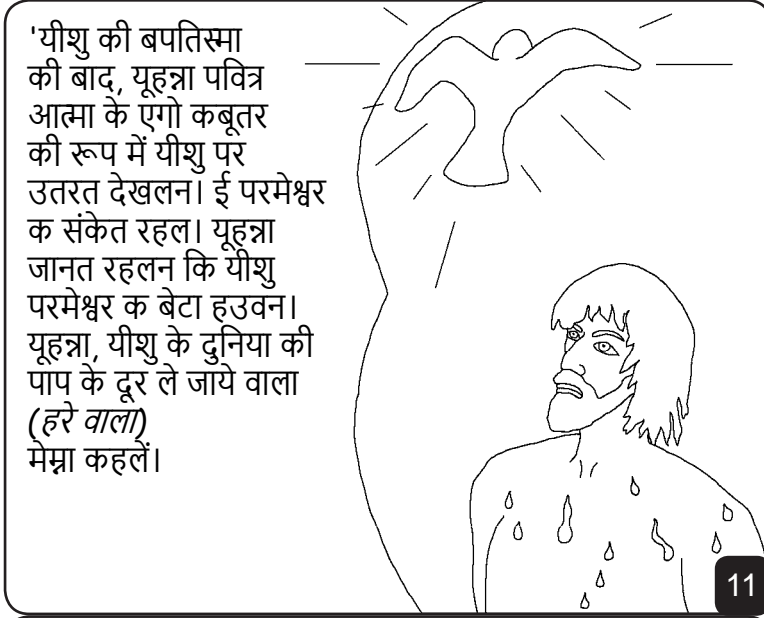 'यीशु की बपतिस्मा
की बाद, यूहन्ना पवित्र
आत्मा के एगो कबूतर
की रूप में यीशु पर
उतरत देखलन। ई परमेश्वर
क संकेत रहल। यूहन्ना
जानत रहलन कि यीशु
परमेश्वर क बेटा हउवन।
यूहन्ना, यीशु के दुनिया की
पाप के दूर ले जाये वाला
(हरे वाला)
मेम्ना कहलें।
11